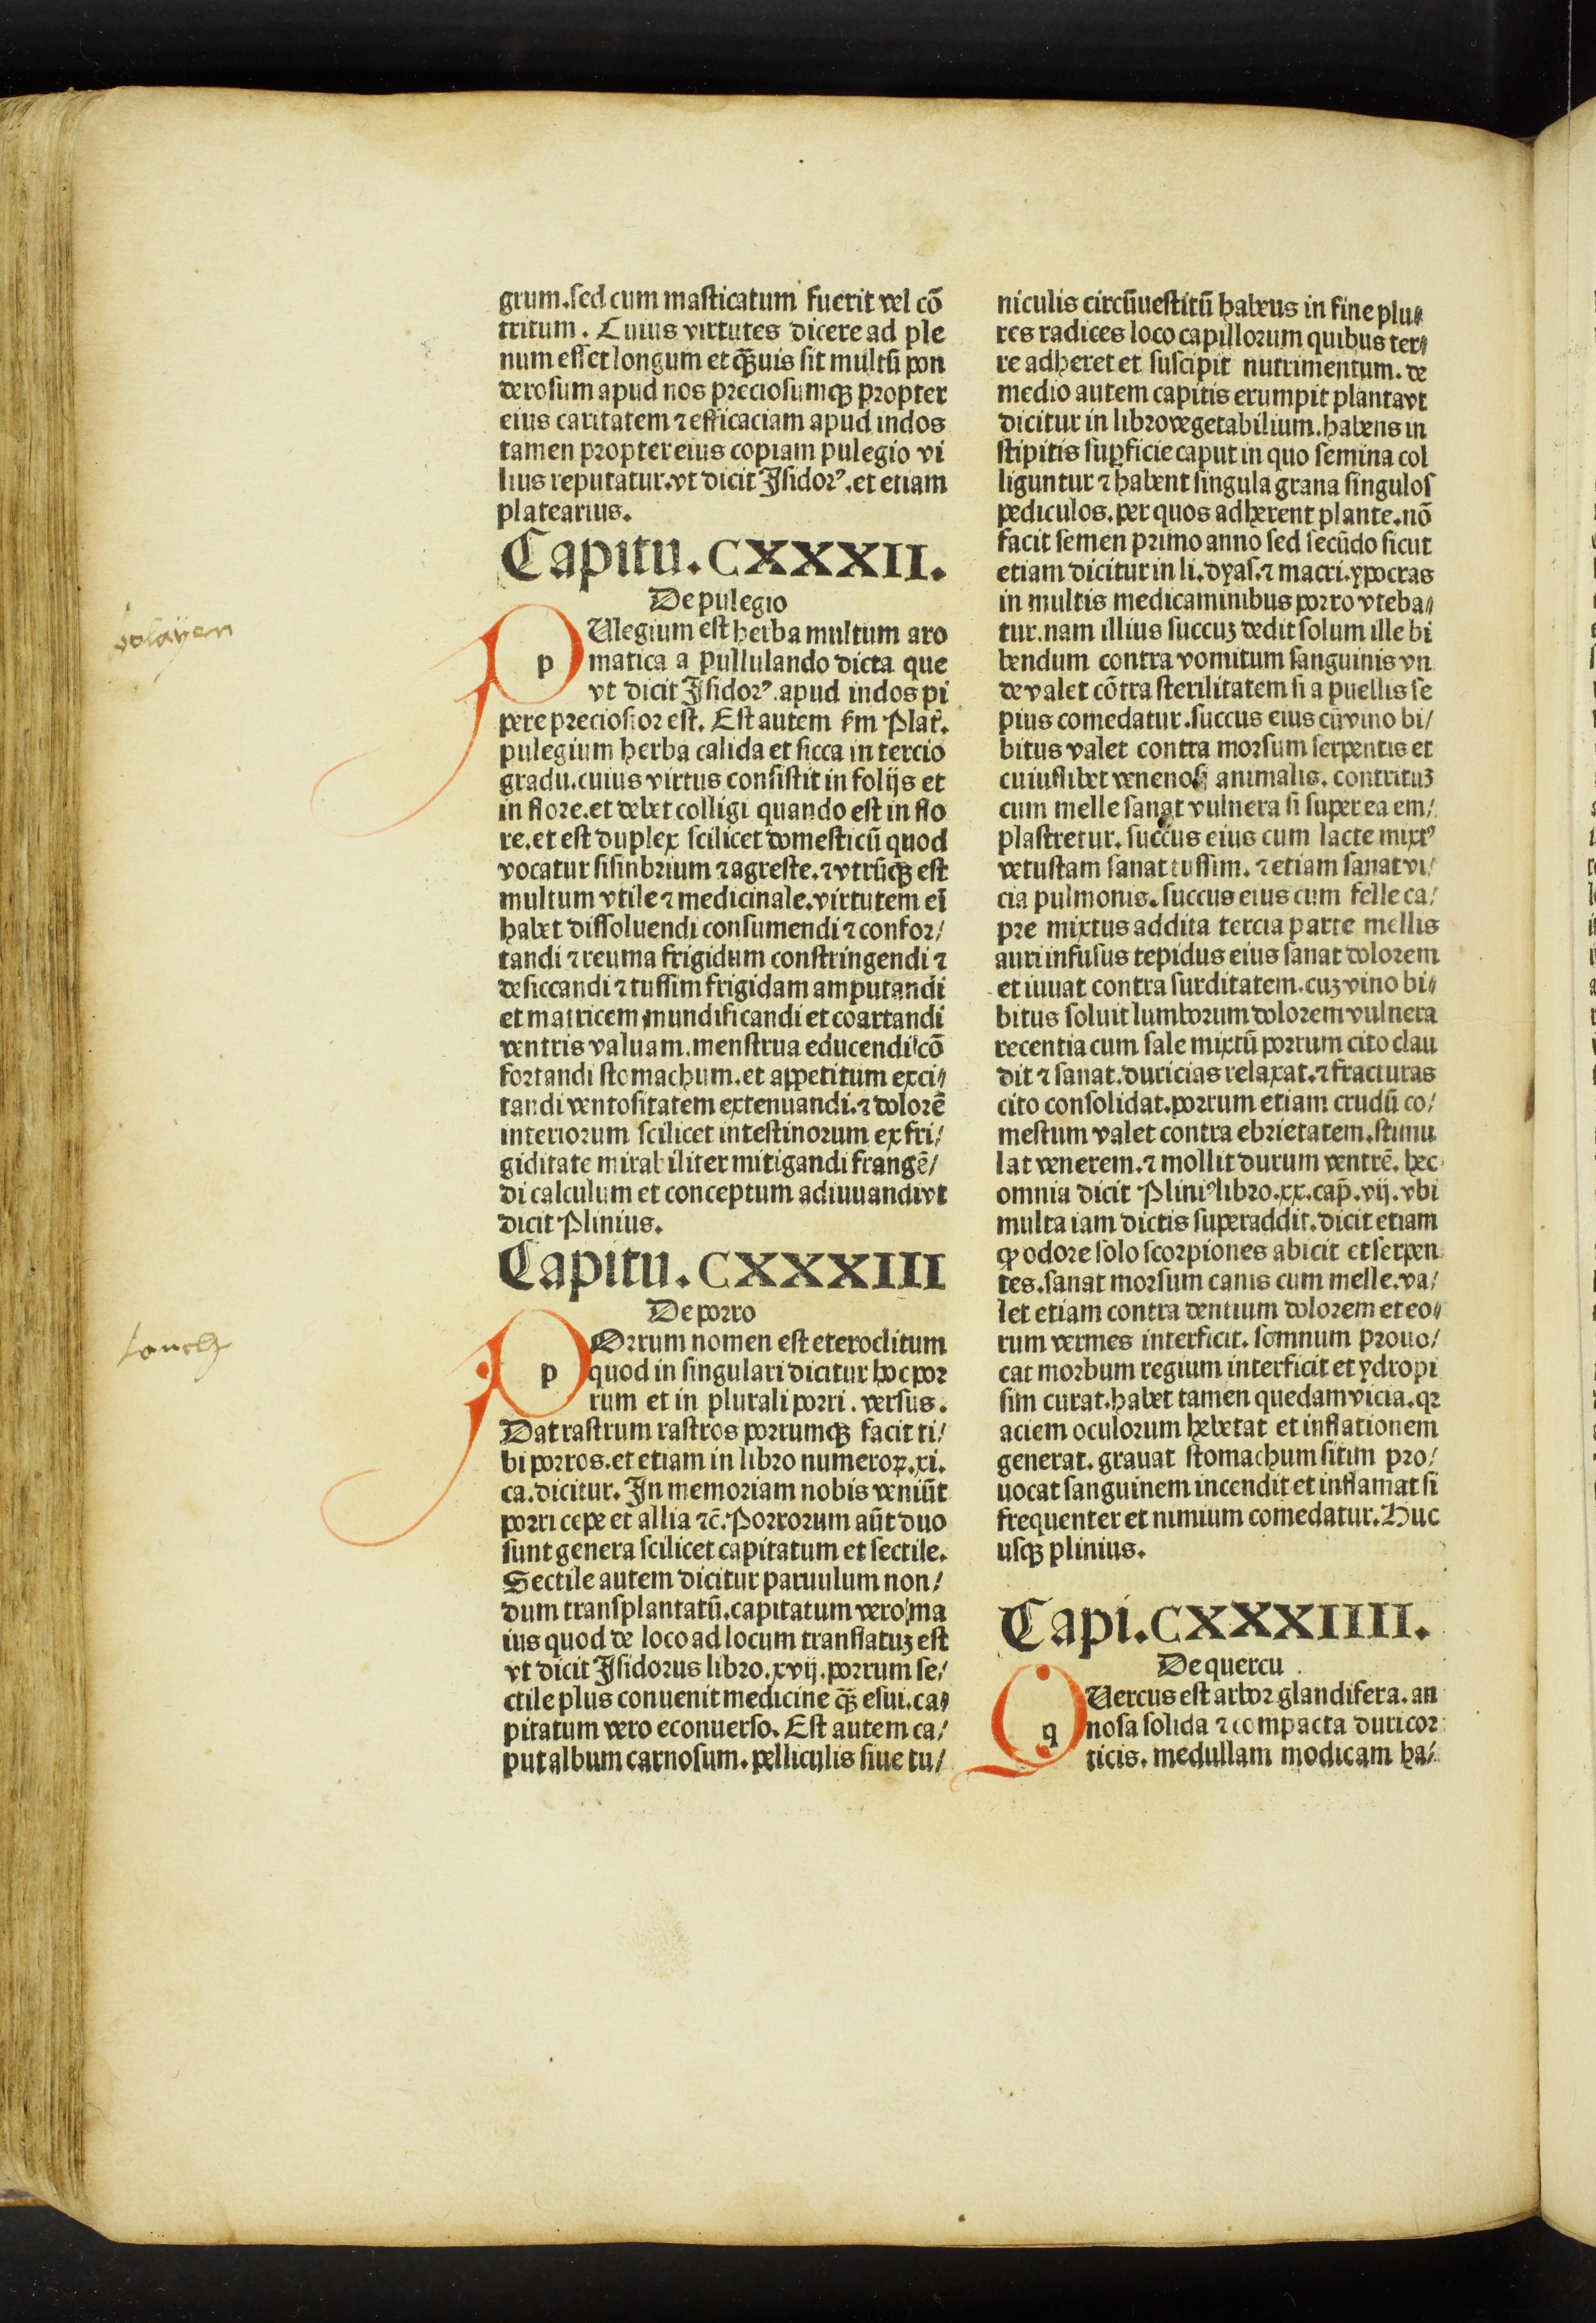 grum.ſed cum maſticatum fuerit vel cō
tritum. Cuius virtutes dicere ad ple
num eſſet longum et qͣꝫuis ſit multū pon
deroſum apud nos precioſumqꝫ propter
eius caritatem ⁊ efficaciam apud indos
tamen propter eius copiam pulegio vi
lius reputatur.vt dicit Iſidorꝰ.et etiam
platearius.
Capitu. CXXXII.
De pulegio
bolayen
Ulegium eſt herba multum aro
p matica a pullulando dicta que
vt dicit Iſidorꝰ.apud indos pi
pere precioſior eſt. Eſt autem ẜm Plat̉.
pulegium herba calida et ſicca in tercio
gradu.cuius virtus conſiſtit in folijs et
in flore.et debet colligi quando eſt in flo
re.et eſt duplex ſcilicet domeſticū quod
vocatur ſiſinbrium ⁊ agreſte.⁊ vtrūqꝫ eſt
multum vtile ⁊ medicinale.virtutem eī
habet diſſoluendi conſumendi ⁊ confor/
tandi ⁊ reuma frigidum conſtringendi ⁊
deſiccandi ⁊ tuſſim frigidam amputandi
et matricem mundificandi et coartandi
ventris valuam.menſtrua educendi cō
fortandi ſtomachum.et appetitum exci⸗
tandi ventoſitatem extenuandi.⁊ dolorē
interiorum ſcilicet inteſtinorum ex fri/
giditate mirabiliter mitigandi frangē/
di calculum et conceptum adiuuandi vt
dicit Plinius.
Capitu. CXXXIII
De porro
lauch
Orrum nomen eſt eteroclitum
p quod in ſingulari dicitur hoc por
rum et in plurali porri. verſus.
Dat raſtrum raſtros porrumqꝫ facit ti/
bi porros.et etiam in libro numeroꝝ.xi.
ca.dicitur. In memoriam nobis veniūt
porri cepe et allia ⁊c̄. Porrorum aūt duo
ſunt genera ſcilicet capitatum et ſectile.
Sectile autem dicitur paruulum non/
dum tranſplantatū.capitatum vero ma
ius quod de loco ad locum tranſlatuꝫ eſt
vt dicit Iſidorus libro.xvij.porrum ſe/
ctile plus conuenit medicine qͣꝫ eſui.ca⸗
pitatum vero econuerſo. Eſt autem ca/
put album carnoſum.pelliculis ſiue tu/
niculis circūueſtitū habens in fine plu⸗
res radices loco capillorum quibus ter⸗
re adheret et ſuſcipit nutrimentum.de
medio autem capitis erumpit planta vt
dicitur in libro vegetabilium.habens in
ſtipitis ſuꝑficie caput in quo ſemina col
liguntur ⁊ habent ſingula grana ſinguloſ
pediculos.per quos adherent plante.nō
facit ſemen primo anno ſed ſecūdo ſicut
etiam dicitur in li.dyaſ.⁊ macri.ypocras
in multis medicaminibus porro vteba⸗
tur.nam illius ſuccuꝫ dedit ſolum ille bi
bendum contra vomitum ſanguinis vn
de valet cōtra ſterilitatem ſi a puellis ſe
pius comedatur.ſuccus eius cū vino bi/
bitus valet contra morſum ſerpentis et
cuiuſlibet venenoſi animalis. contrituꝫ
cum melle ſanat vulnera ſi ſuper ea em/
plaſtretur. ſuccus eius cum lacte mixtꝰ
vetuſtam ſanat tuſſim. ⁊ etiam ſanat vi/
cia pulmonis.ſuccus eius cum felle ca/
pre mixtus addita tercia parte mellis
auri infuſus tepidus eius ſanat dolorem
et iuuat contra ſurditatem.cuꝫ vino bi⸗
bitus ſoluit lumborum dolorem vulnera
recentia cum ſale mixtū porrum cito clau
dit ⁊ ſanat.duricias relaxat.⁊ fracturas
cito conſolidat.porrum etiam crudū co/
meſtum valet contra ebrietatem.ſtimu
lat venerem.⁊ mollit durum ventrē. hec
omnia dicit Pliniꝰ libro.xx.cap̄.vij.vbi
multa iam dictis ſuperaddit.dicit etiam
ꝙ odore ſolo ſcorpiones abicit et ſerpen
tes.ſanat morſum canis cum melle.va/
let etiam contra dentium dolorem et eo⸗
rum vermes interficit. ſomnum prouo/
cat morbum regium interficit et ydropi
ſim curat.habet tamen quedam vicia.qꝛ
aciem oculorum hebetat et inflationem
generat. grauat ſtomachum ſitim pro/
uocat ſanguinem incendit et inflamat ſi
frequenter et nimium comedatur. Huc
uſqꝫ plinius.
Capi. CXXXIIII.
De quercu
Uercus eſt arbor glandifera. an
q noſa ſolida ⁊ compacta duri cor
ticis. medullam modicam ha/